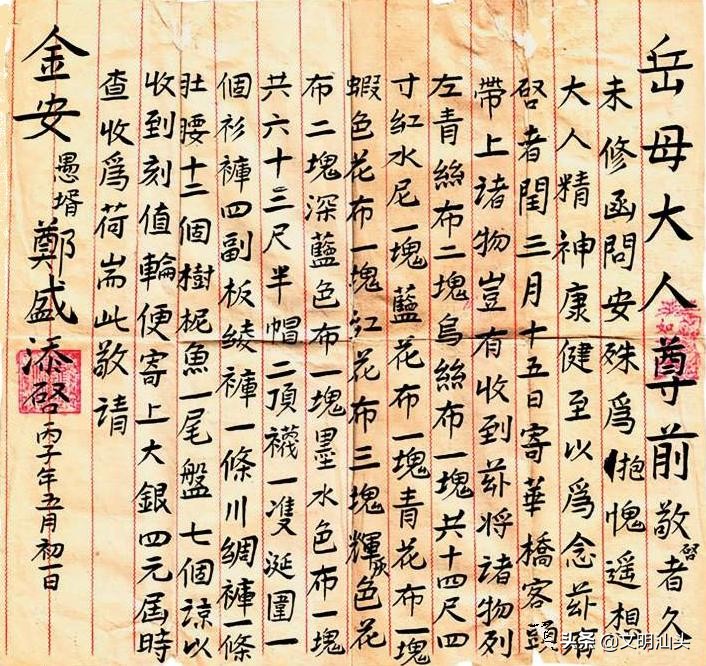 岳母大人尊前敬啓者久
未修函問安殊爲抱愧遥想
大人精神康健至以爲念茲有
啓者閏三月十五日寄華橋客頭
帶上諸物豈有收到茲將諸物列
左青絲布二塊烏絲布一塊共十四尺四
寸紅水尼一塊藍花布一塊青花布一塊
蝦色花布一塊紅花布三塊輝灰色花
布二塊深藍色布一塊墨水色布一塊
共六十三尺半帽二頂襪一雙涎圍一
個衫褲四副板綾褲一條川綢褲一條
肚腰十二個樹柅魚一尾盤七個諒以
收到刻值輪便寄上大銀四元屆時
查收爲荷耑此敬請
金安 愚壻鄭盛添啓 丙子年五月初一日
头条 @文明汕头